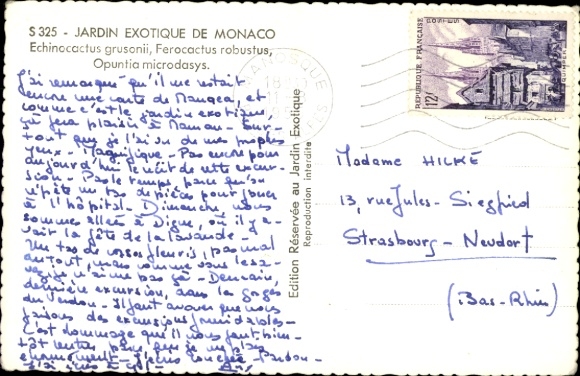 S 325 - JARDIN EXOTIQUE DE MONACO
Echinocactus grusonii, Ferocactus robustus,
Opuntia microdasys.
J'ai remarqué qu'il me restait
encore une carte de et
comme c'est le jardin exotique,
ça fera plaisir à Maman - Sur-
tout que je l'ai vu de mes propres
yeux - Magnifique - Pas encore pour
aujourd'hui le récit de cette excur-
sion - Pas le temps parce qu'on
répète un tas de pièces pour jouer
à l'hôpital - Dimanche, nous
sommes allés à Digne, où il y a-
vait la fête de la lavande -
Un tas de corsos fleuris, pas mal
du tout,
Demain,
dernière excursion, dans les gorges
du Verdon - Il faut avouer que nous
faisons des excursions formidables -
C'est dommage qu'il nous faut bien-
tôt rentrer
énormément -
Edition Réservée au Jardin Exotique
Reproduction interdite
MANOSQUE
REPUBLIQUE FRANÇAISE
POSTES
12F
QUIMPER
Madame HILKÉ
13, rue Jules - Siegfried
Strasbourg - Neudorf
(Bas-Rhin)